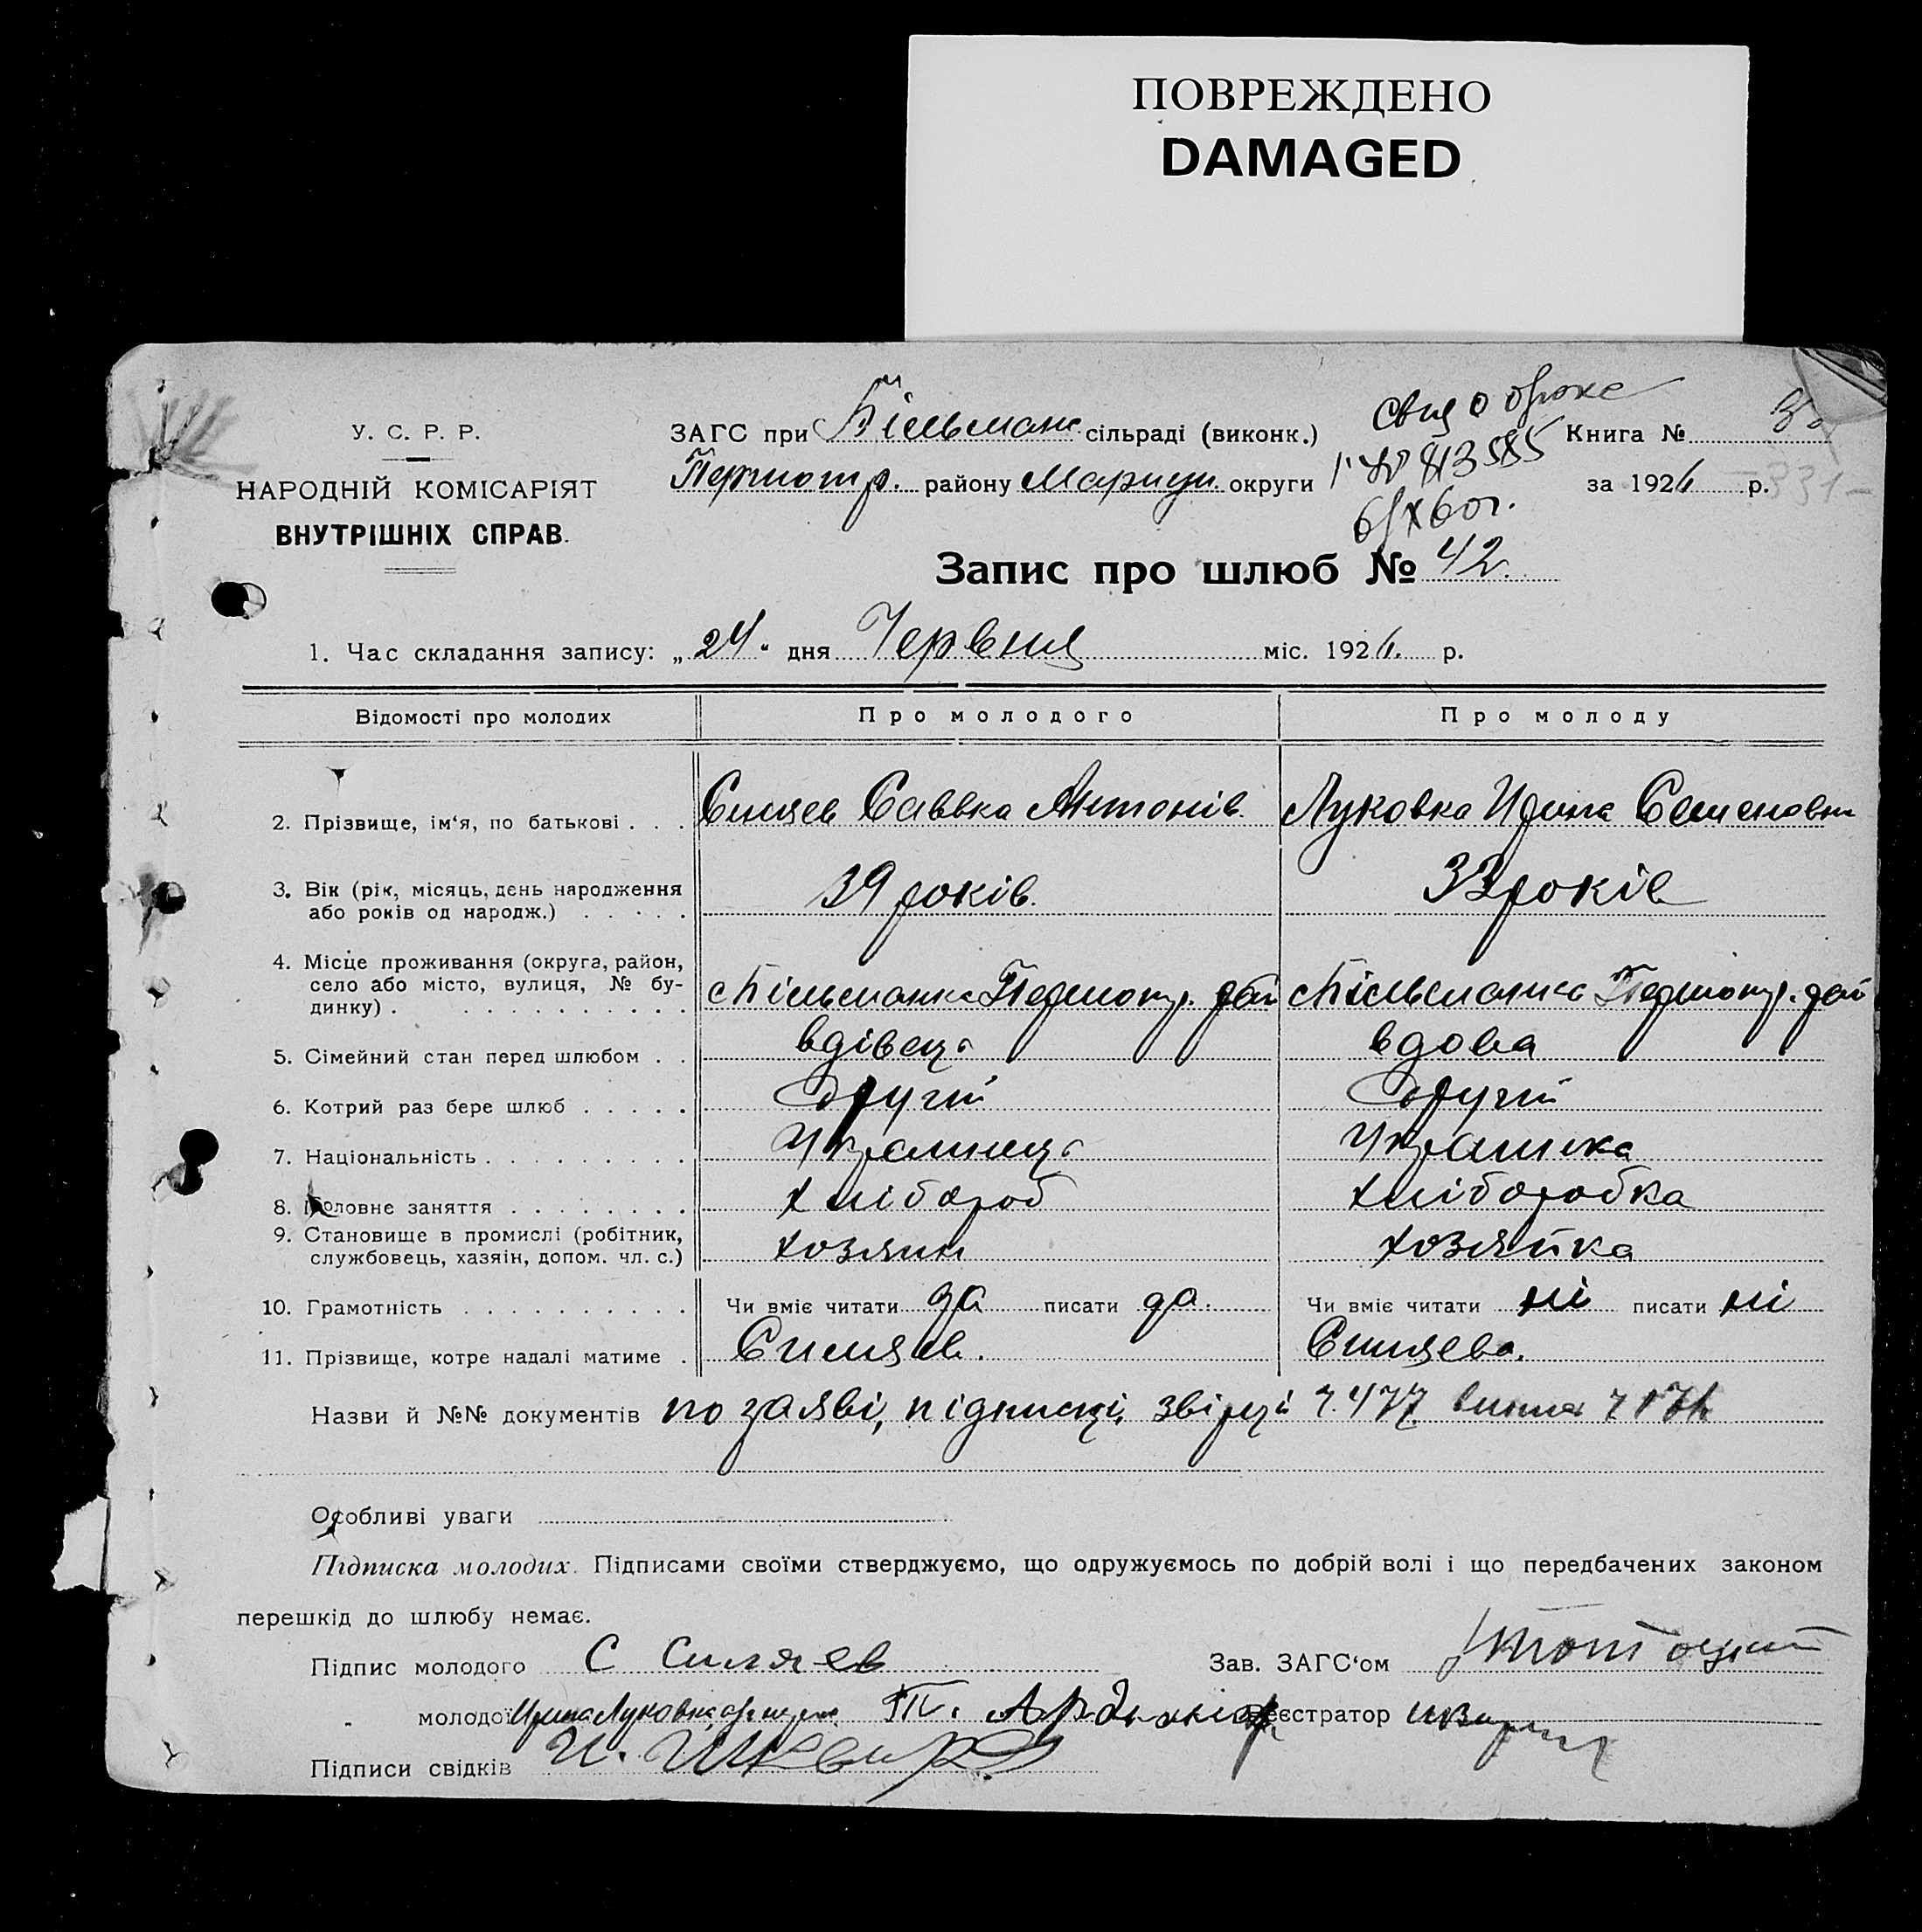 ПОВРЕЖДЕНО
DAMAGED
У. С. Р. Р.
НАРОДНІЙ КОМІСАРІЯТ
ВНУТРІШНІХ СПРАВ.
ЗАГС при Більманс. сільраді (виконк.)
района Маріуп. округи
Книга №
за 1926 р.
Запис про шлюб № 42.
1. Час складання запису: „24“ дня Червня міс. 1926. р.
Відомості про молодих Про молодого Про молоду
2. Прізвище, ім‘я, по батькові . . . Саввка Антонів. Луковка Ирина Семеновна
3. Вік (рік, місяць, день народження
або років од народж.) . . . . . 39 років. 33 років
4. Місце проживання (округа, район,
село або місто, вулиця, № бу-
динку) . . . . . . . . . . . сБільманка Першотр. рай сБільманка Першотр. рай
5. Сімейний стан перед шлюбом . . вдівець вдова
6. Котрий раз бере шлюб . . . . . другий другий
7. Національність . . . . . . . . . Українець Українка
8. Головне заняття . . . . . . . . хлібороб хліборобка
9. Становище в промислі (робітник,
службовець, хазяїн, допом. чл. с.) хозяин хозяйка
10. Грамотність . . . . . . . . . . Чи вміє читати да писати да. Чи вміє читати ні писати ні
11. Прізвище, котре надалі матиме .
Назви й №№ документів по заяві, підписці, звірці ч. 477
Особливі уваги
Підписка молодих. Підписами своїми стверджуємо, що одружуємось по добрій волі і що передбачених законом
перешкід до шлюбу немає.
Підпис молодого С Силяев Зав. ЗАГС‘ом
„ молодої Ирина Луковка Реєстратор
Підписи свідків